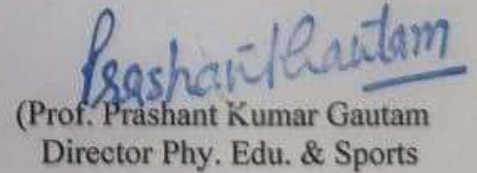 Prashant Gautam
(Prof. Prashant Kumar Gautam
Director Phy. Edu. & Sports